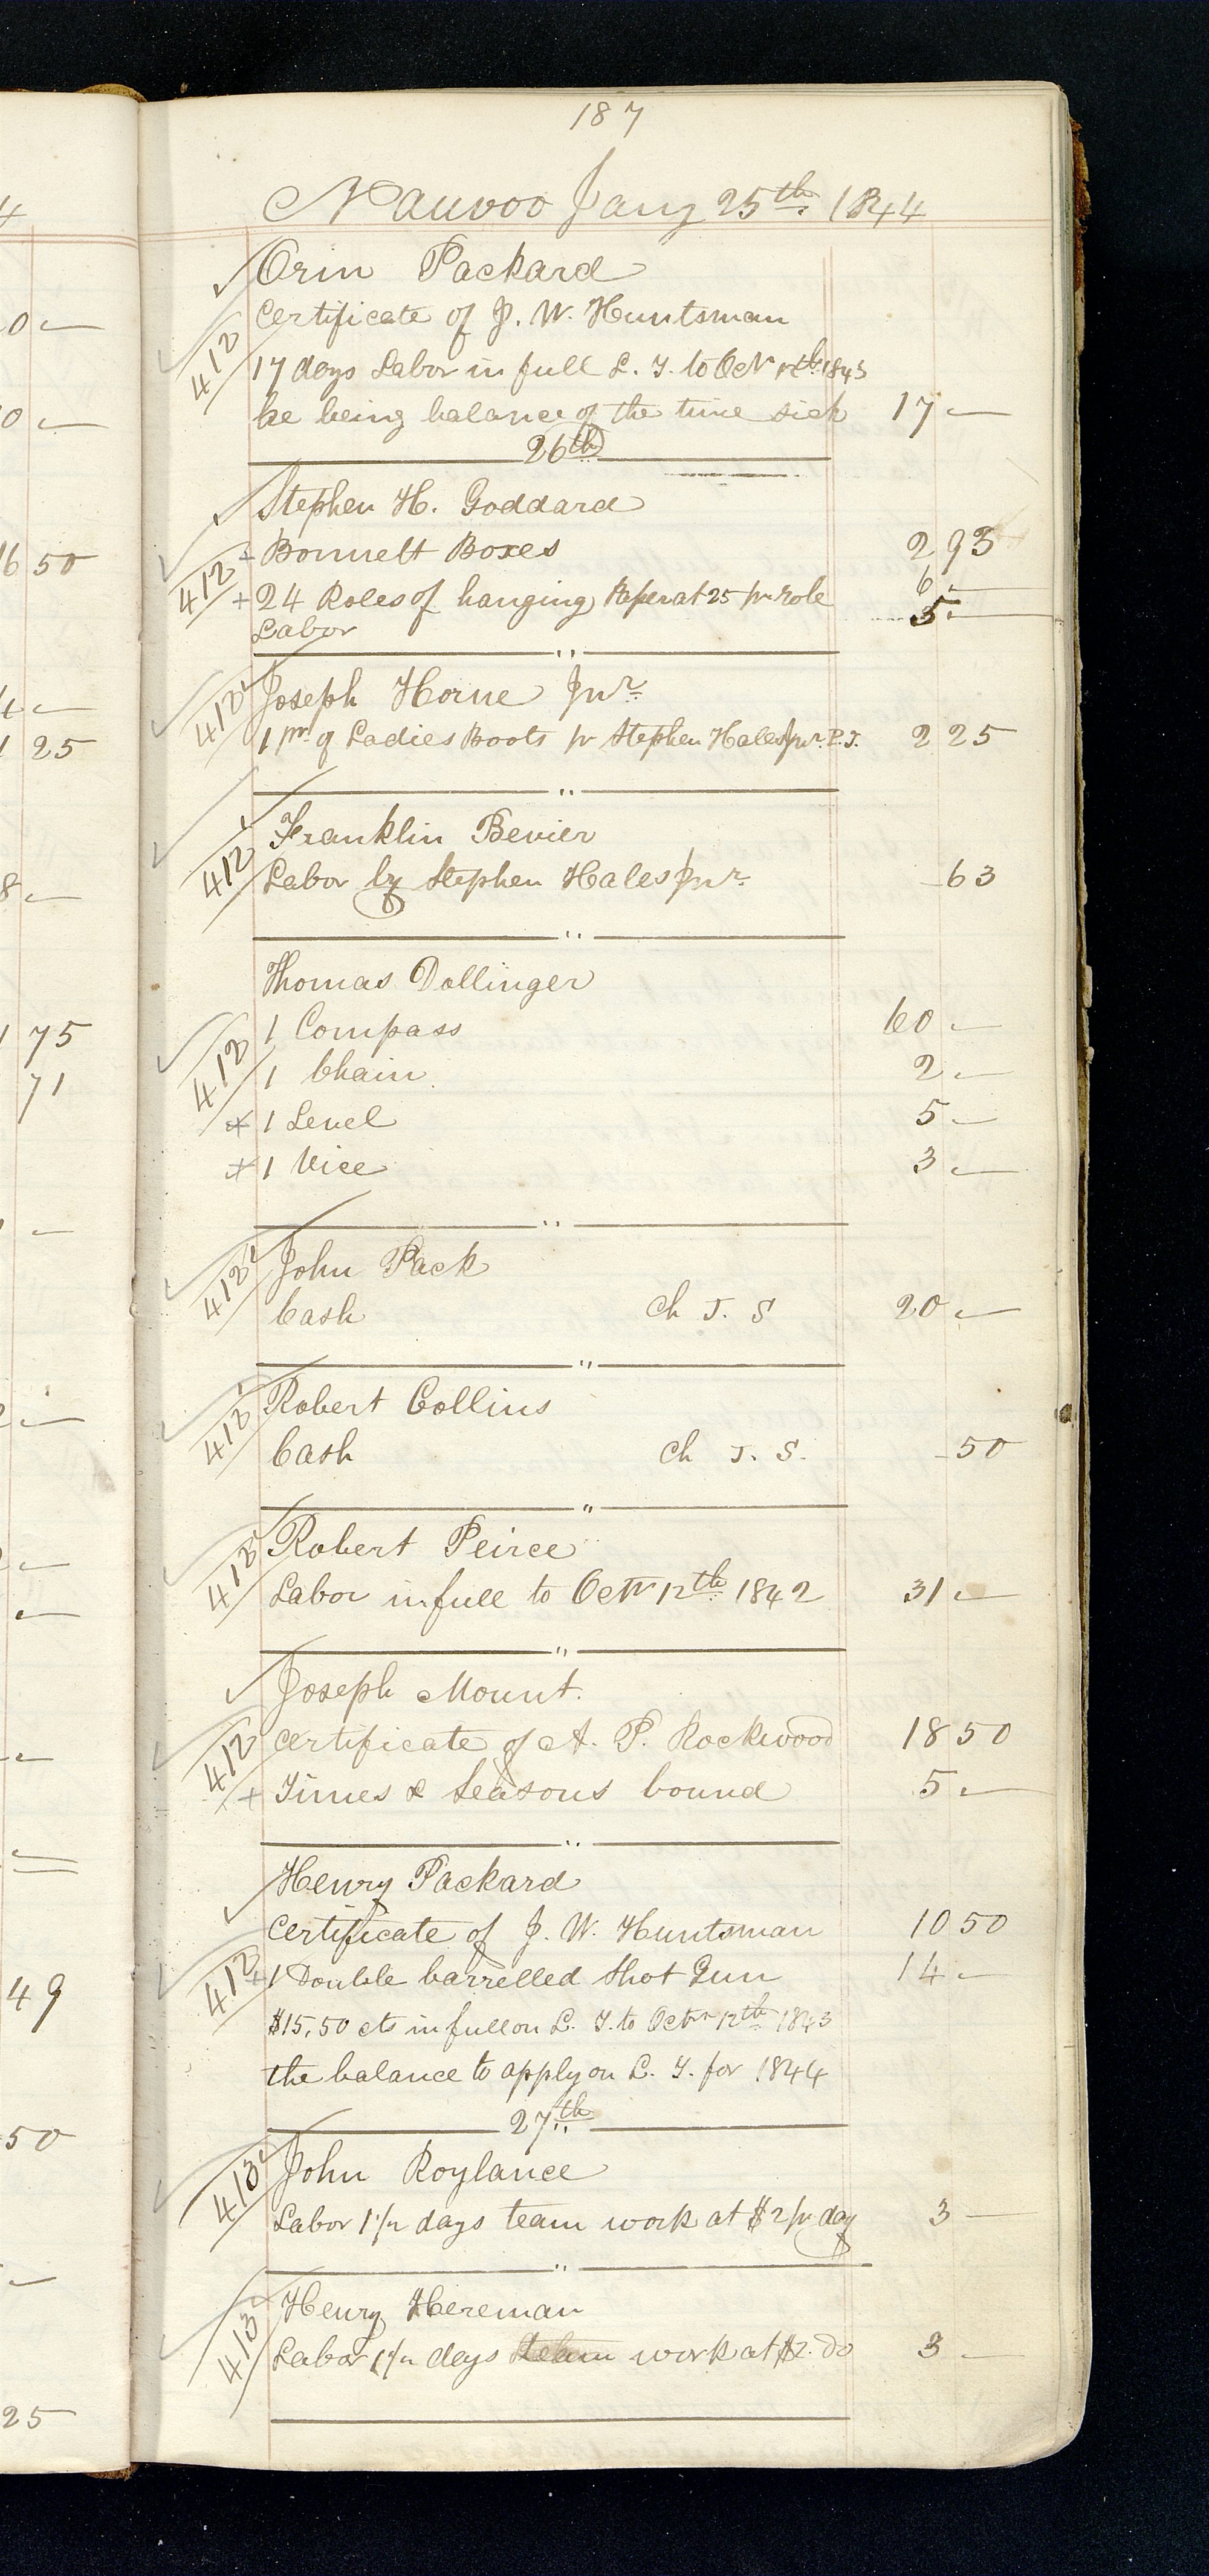 187
Nauvoo Jany 25th 1844
Orin Packard
412
Certificate of J. W. Huntsman
17 days Labor in full L. T. to Octr 12th 1843
he being balance of the time sick 17 —
26th
Stephen H. Goddard
412
Bonnett Boxes 2 93
+ 24 Roles of hanging Paper at 25 pr role 6 —
Labor 5 —
"
412
Joseph Horne Jnr.
1 pr of Ladies Boots pr Stephen Hales Jnr. P. T. 2 25
"
Franklin Bevier
412
Labor by Stephen Hales Jnr. - 63
"
Thomas Dollinger
412
1 Compass 60 —
1 Chain 2 —
+ 1 Level 5 —
+ 1 Vice 3 —
"
John Pack
413
Cash Ch T. S 20 —
"
Robert Collins
413
Cash Ch T. S. - 50
"
Robert Peirce
413
Labor in full to Octr 12th 1842 31 —
"
Joseph Mount.
412
Certificate of A. P. Rockwood 18 50
+ Times & Seasons bound 5 —
"
Henry Packard
Certificate of J. W. Huntsman 10 50
412
+ 1 Double barrelled Shot Gun 14 —
$15,50 cts in full on L. T. to Octr 12th 1843
the balance to apply on L. T. for 1844
27th
John Roylance
413
Labor 1 1/2 days team work at $2 pr day 3 —
"
Henry Hereman
413
Labor 1 1/2 days team work at $2. do 3 —
4
0 —
0 —
16 50
4 —
1 25
8 —
1 75
71
—
2 —
—
—
—
49
50
—
25